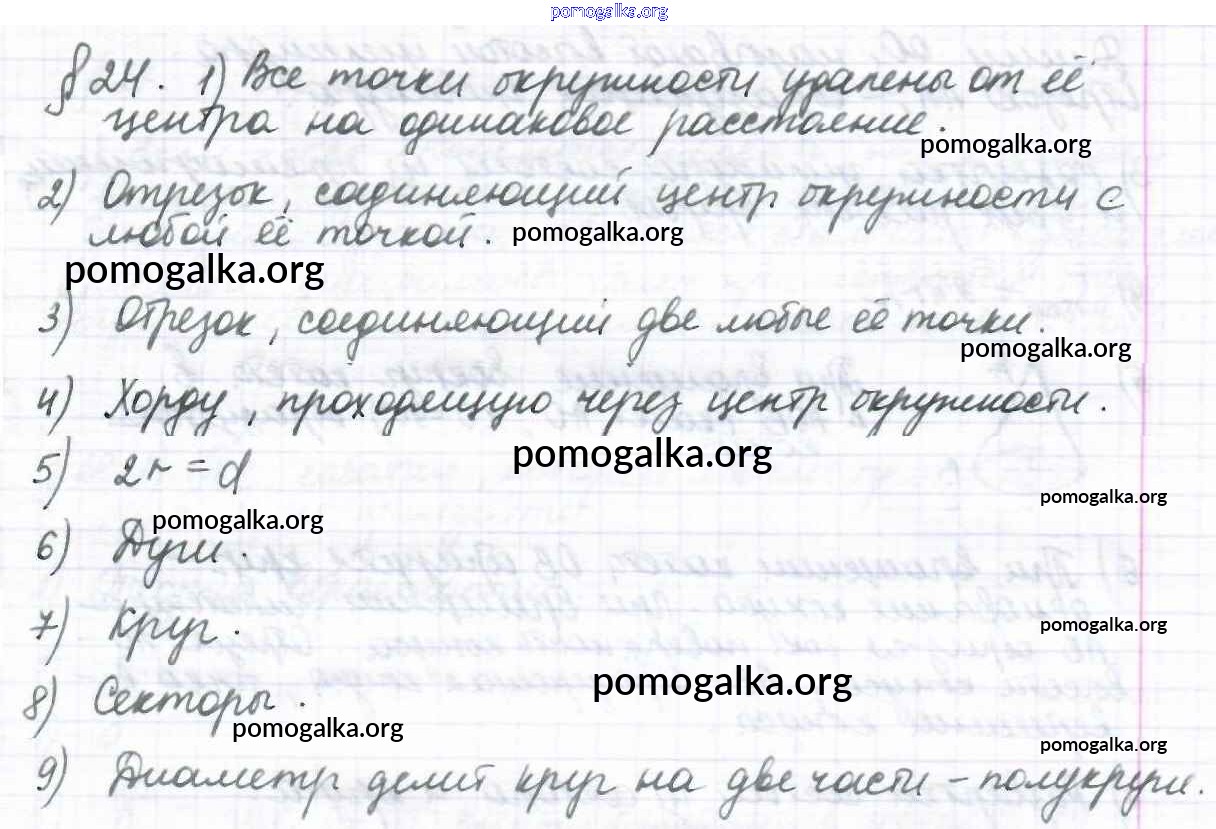 pomogalka.org
§ 24. 1) Все точки окружности удалены от её
центра на одинаковое расстояние.
pomogalka.org
2) Отрезок, соединяющий центр окружности с
любой её точкой.
pomogalka.org
pomogalka.org
3) Отрезок, соединяющий две любые её точки.
pomogalka.org
4) Хорду, проходящую через центр окружности.
pomogalka.org
5) 2r = d
pomogalka.org
pomogalka.org
6) Дуги.
7) Круг.
pomogalka.org
pomogalka.org
8) Секторы.
pomogalka.org
pomogalka.org
9) Диаметр делит круг на две части – полукруги.